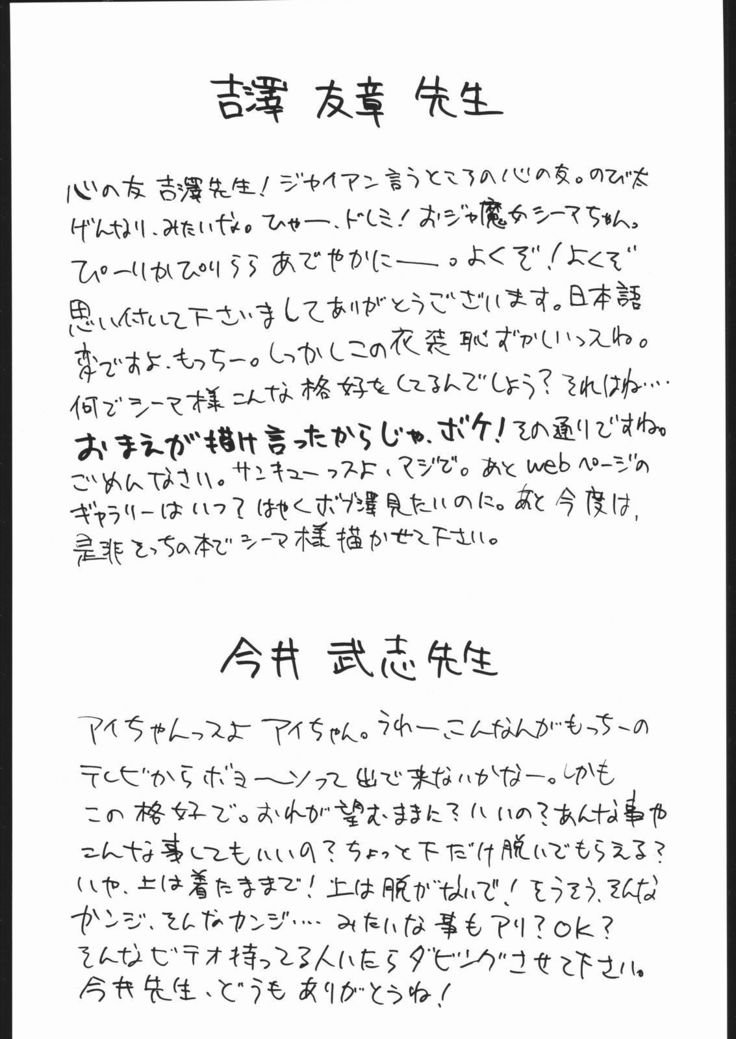 吉澤 友章 先生
心の友 吉澤先生！ジャイアン言うところの心の友。のび太
げんなり、みたいな。ひゃー、ドレミ！おジャ魔女シーマちゃん。
ぴーりかぴりらら あでやかにー。よくぞ！よくぞ
思い付いて下さいましてありがとうございます。日本語
変ですよ、もっちー。しっかしこの衣装恥ずかしいっスね。
何でシーマ様こんな格好をしてるんでしょう？それはね…
おまえが描け言ったからじゃ、ボケ！その通りですね。
ごめんなさい。サンキューっスよ、マジで。あとwebページの
ギャラリーはいつ？はやくボブ澤見たいのに。あと今度は、
是非そっちの本でシーマ様描かせて下さい。
今井 武志先生
アイちゃんっスよ アイちゃん。うわー、こんなんがもっちーの
テレビからボヨ〜ンって出て来ないかなー。しかも
この格好で。おれが望むままに？いいの？あんな事や
こんな事してもいいの？ちょっと下だけ脱いでもらえる？
いや、上は着たままで！上は脱がないで！そうそう、そんな
カンジ、そんなカンジ…みたいな事もアリ？OK？
そんなビデオ持ってる人いたらダビングさせて下さい。
今井先生、どうもありがとうね！